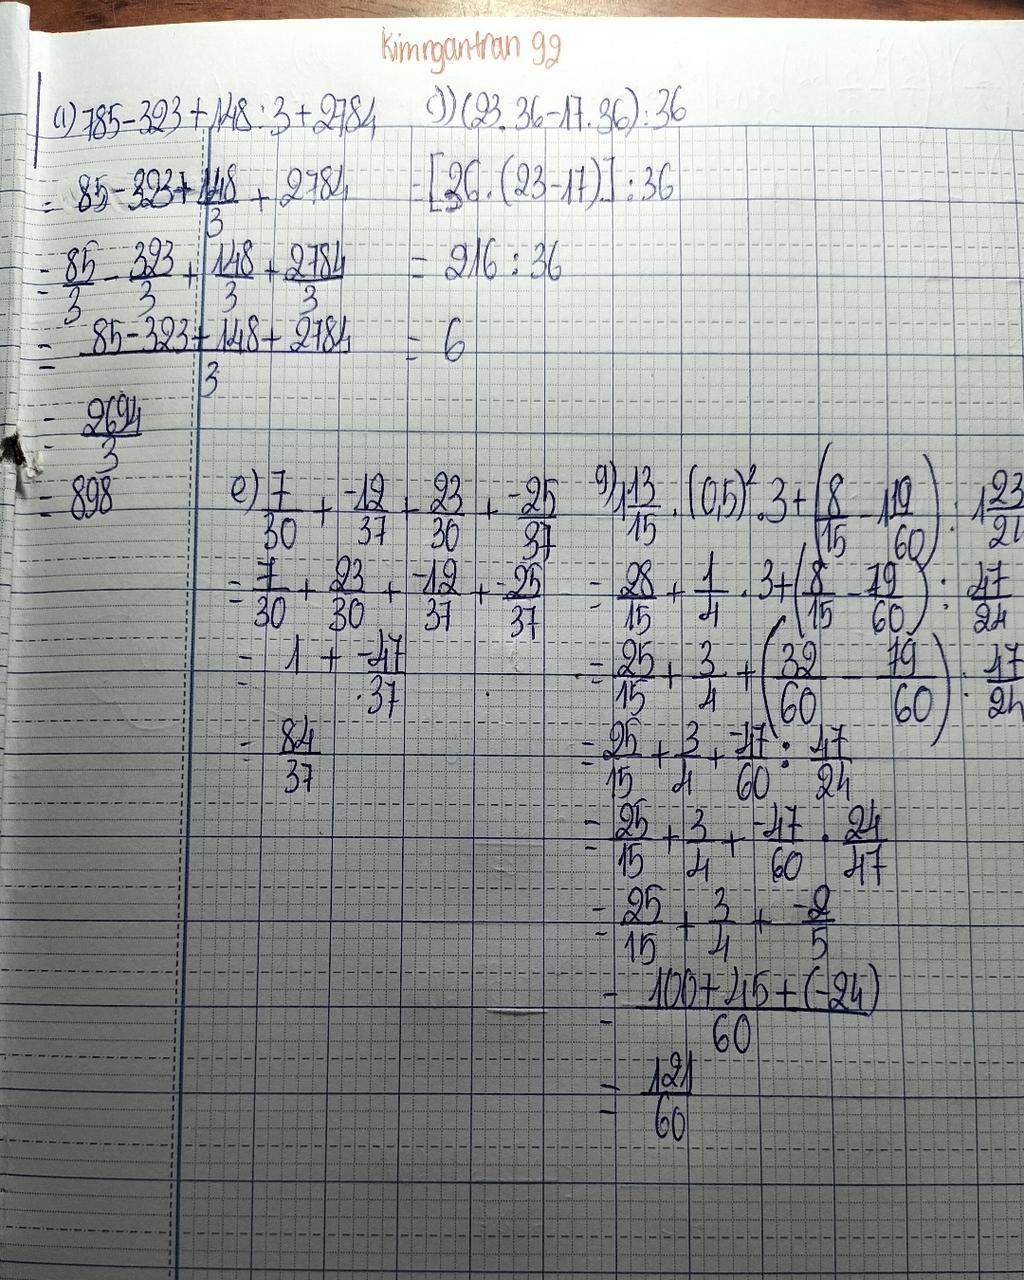 Kimngantran 92
a) 785-323+148:3+2784
= 85-323+148/3+2784
= 85/3-323/3+148/3+2784/3
= (85-323+148+2784)/3
= 2694/3
= 898
c)) (23.36-17.36):36
= [36.(23-17)]:36
= 216:36
= 6
e) 7/30+-12/37+23/30+-25/37
= 7/30+23/30+-12/37+-25/37
= 1+-47/37
= 84/37
g) 1 13/15.(0,5)².3+(8/15-1 19/60):1 23/24
= 28/15+1/4.3+(8/15-79/60):47/24
= 25/15+3/4+(32/60-79/60):47/24
= 25/15+3/4+-47/60:47/24
= 25/15+3/4+-47/60.24/47
= 25/15+3/4+-2/5
= (100+45+(-24))/60
= 121/60